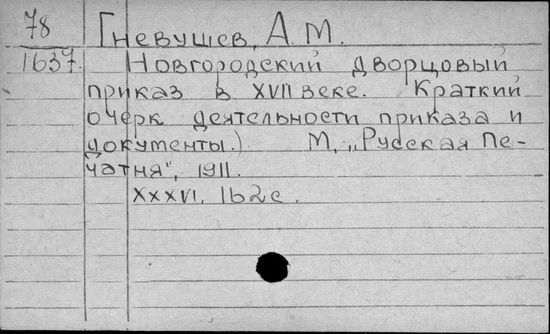 78
1637.
Гневушев, А. М.
Новгородский дворцовый
приказ в XVII веке. Краткий
очерк деятельности приказа и
документы.)
М, „Русская Пе-
чатня", 1911.
XXXVI, 162 с.